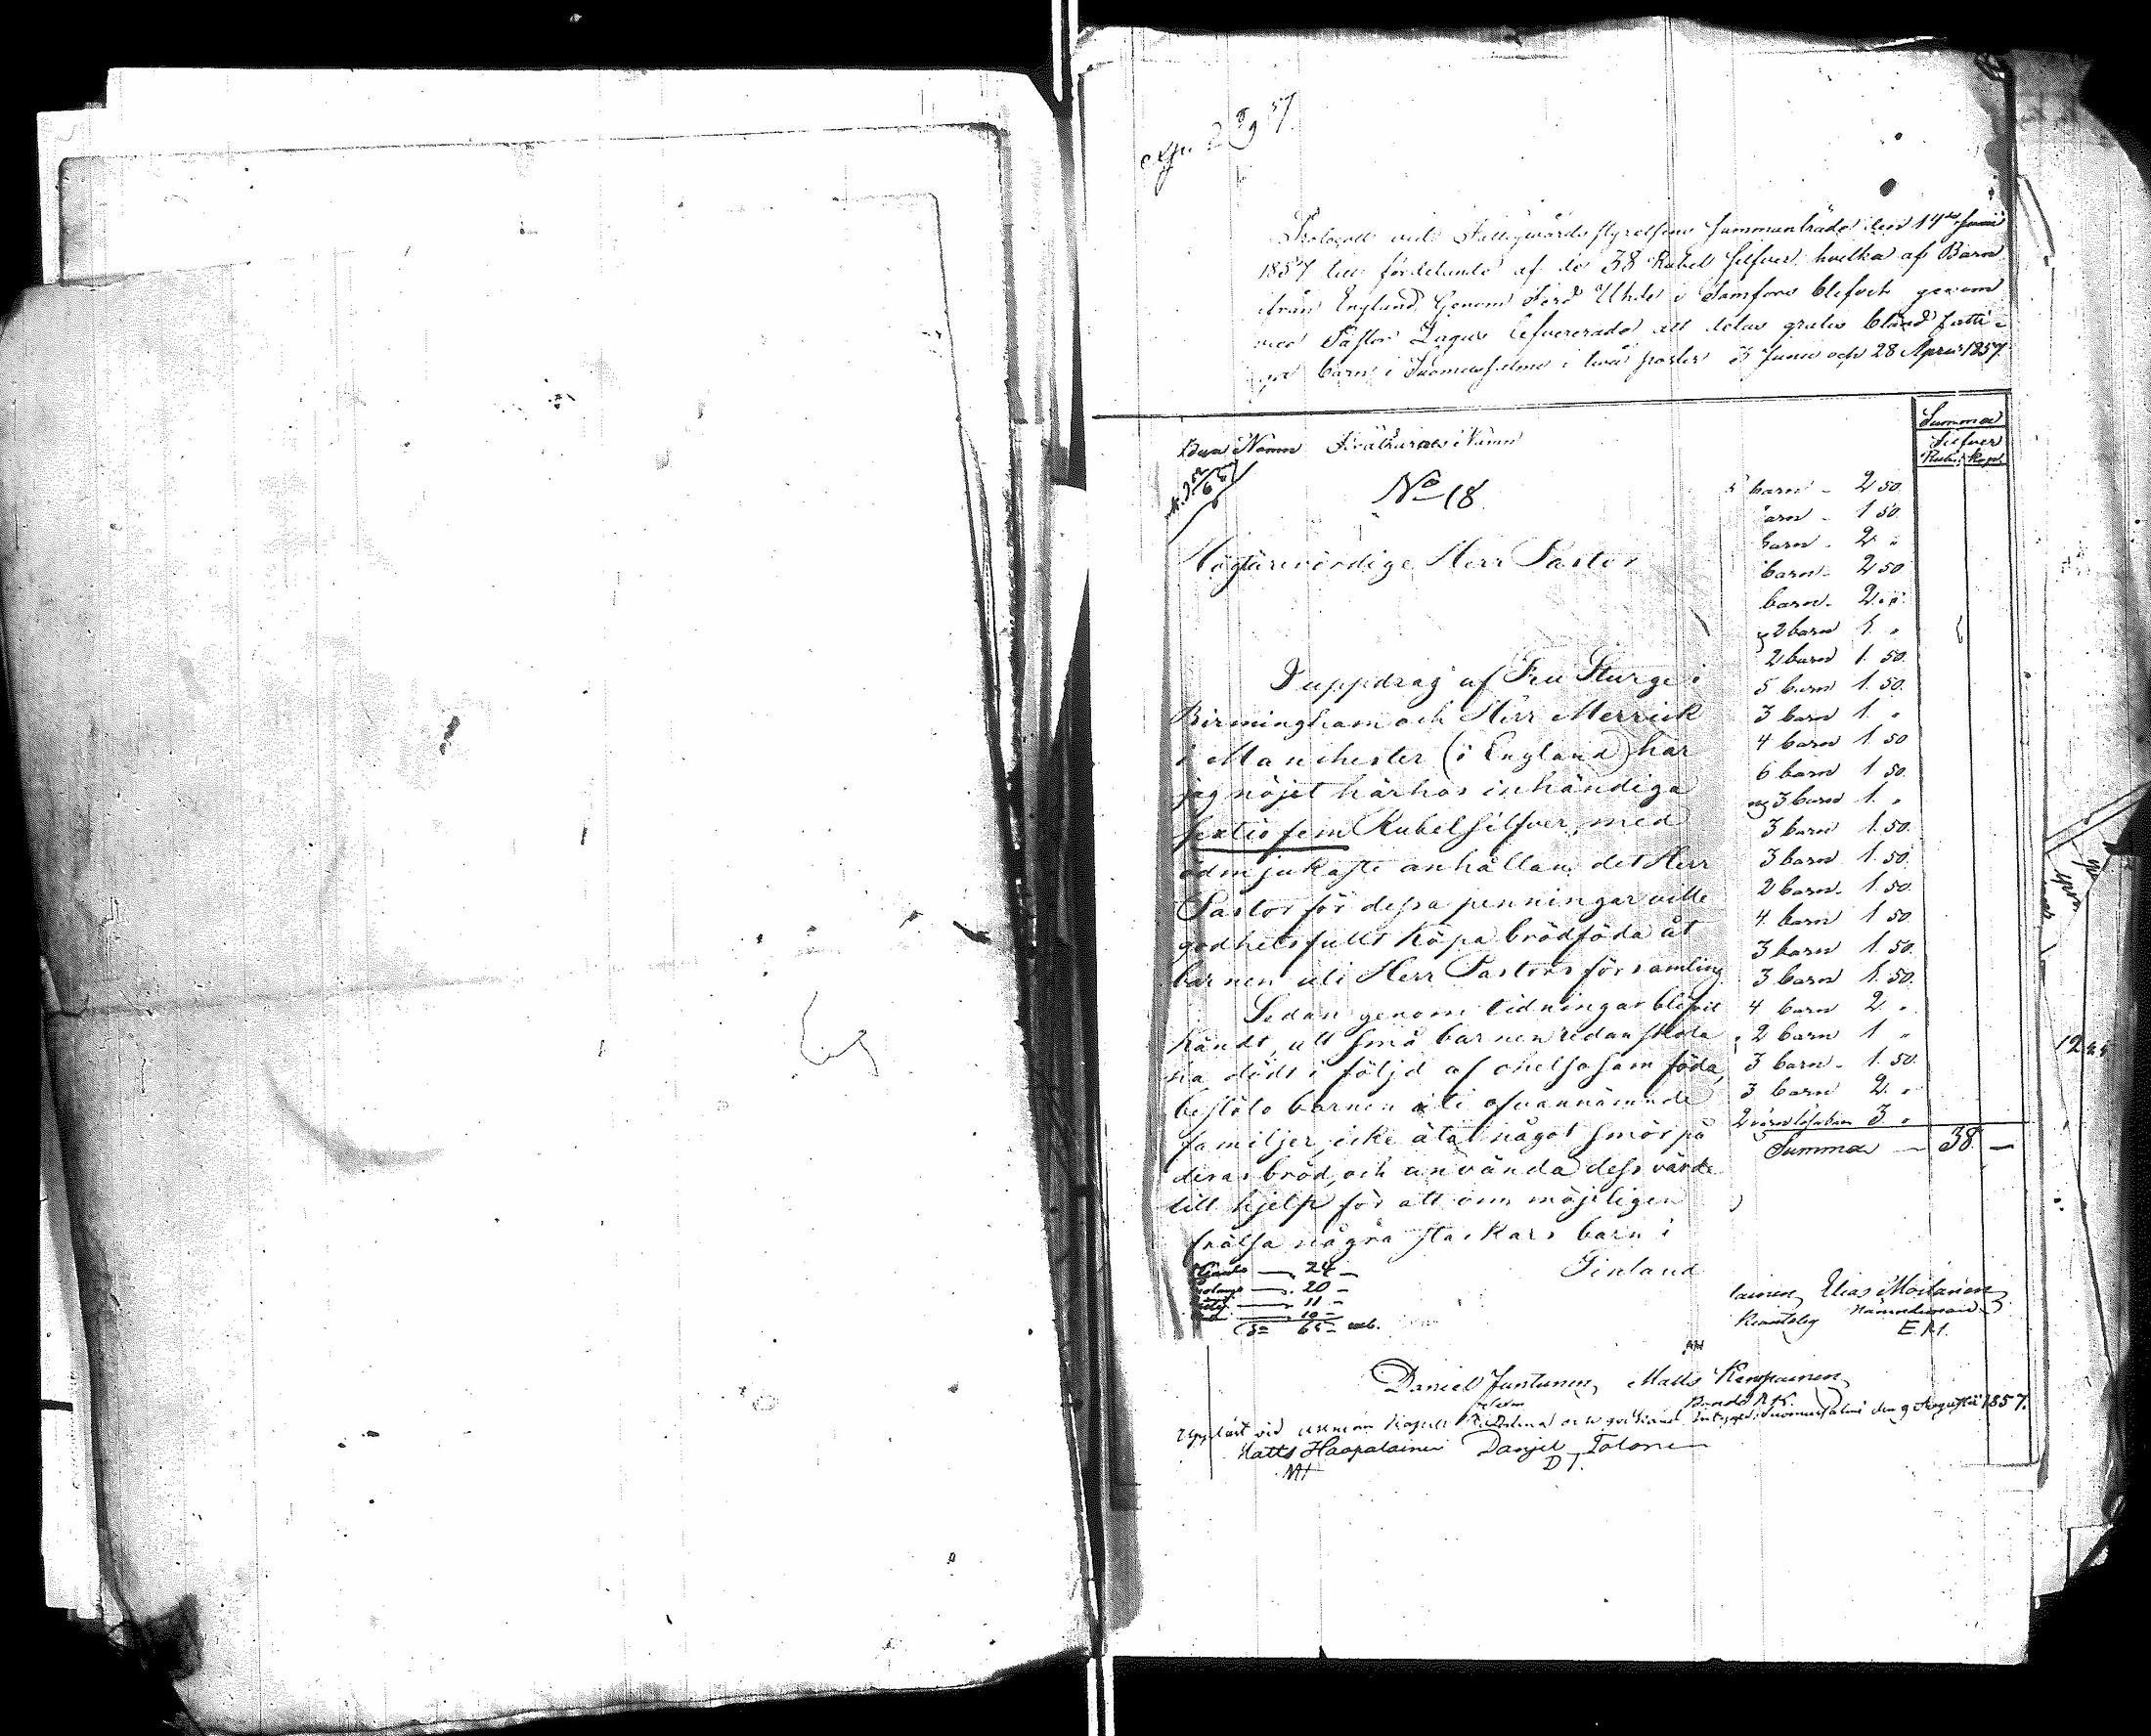 Protocoll vid Fattigvårdsstyrelsens sammanträde den 14de Junii
1857 till fördelande af de 38 Rubel silfver hvilka af Barn
ifrån England Genom Herr Uhde i Tamfors blifvit genom
Pastor Lagus lefvererade att delas gratis bland fatti-
ga barn i Suomensalmi i två poster 3 Junii och 28 April 1857.
Summa
Silfver
Rubel Kopek
Byars Namn Föräldrarnes Namn
No 18
Högärevördige Herr Pastor
I uppdrag af Fru Sturge i
Birmingham och Herr Merrick
i Manchester (i England) har
jag nöjet härhos inhändiga
sextio fem Rubel silfver, med
ödmjukaste anhållan det Herr
Pastor för dessa penningar ville
godhetsfullt köpa brödföda åt
barnen uti Herr Pastors församling
Sedan genom tidningar blifvit
kändt, att små barnen redan skola
ha dödt i följd af ohelsosam föda,
beslöto barnen uti ofvannämnde
familjer icke äta något smör på
deras bröd, och använda dess värde
till hjelp för att om möjeligen
frälsa några stackars barn i
Finland
24 —
20 —
11 —
10 —
65 —
5 barn - 2 50.
arn - 1 50.
barn - 2 "
barn - 2 50
barn - 2 "
2 barn 1. "
2 barn 1. 50.
5 barn 1. 50.
3 barn 1. "
4 barn 1. 50
6 barn 1 50.
3 barn 1. "
3 barn 1. 50.
3 barn 1. 50.
2 barn - 1. 50.
4 barn 1 50
3 barn 1. 50.
3 barn 1. 50.
4 barn 2 "
2 barn 1 "
3 barn - 1. 50.
3 barn 2. "
2 3 "
Summa — 38 —
lainen, Elias Moilanen,
Nämndeman
E.M.
Daniel Juntunen, Matts Kemppainen,
Uppläst vid Suomensalmi den 9 Augusti 1857.
Matts Haapalainen Danjel Tolonen
MH D T.